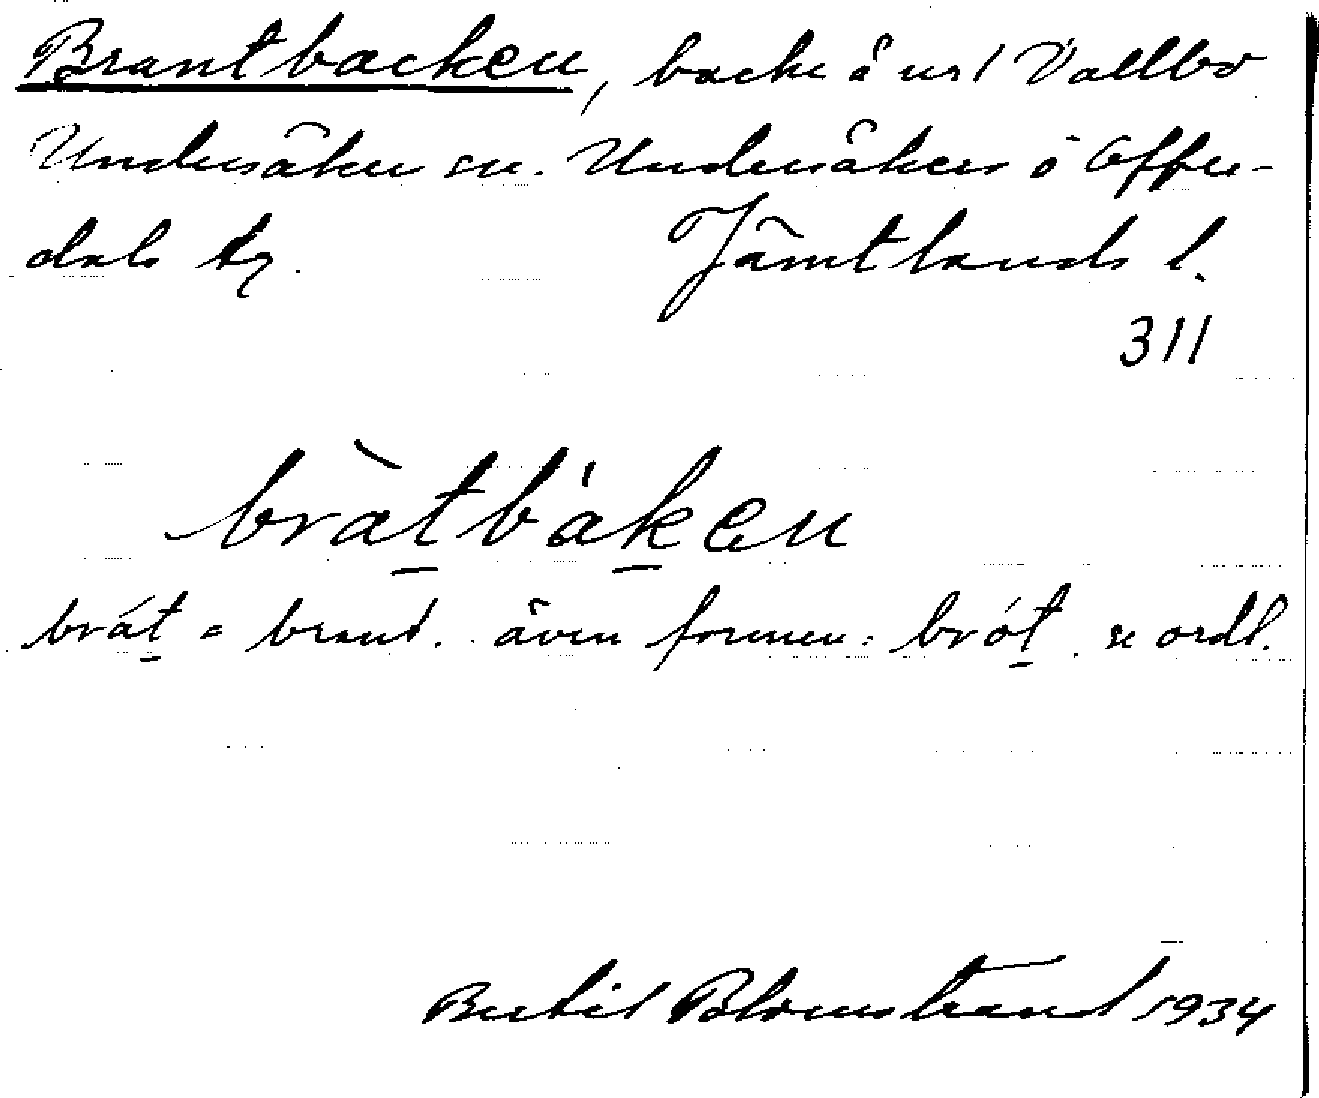 Brantbacken, backe å ns1 Vallbo
Undersåker sn. Undersåkers o Offer-
dals tg. Jämtlands l.
311
bràt̠bák̠en
brát̠ = brant. även formen: brót̠. se ordl.
Bertil Blomstrand 1934